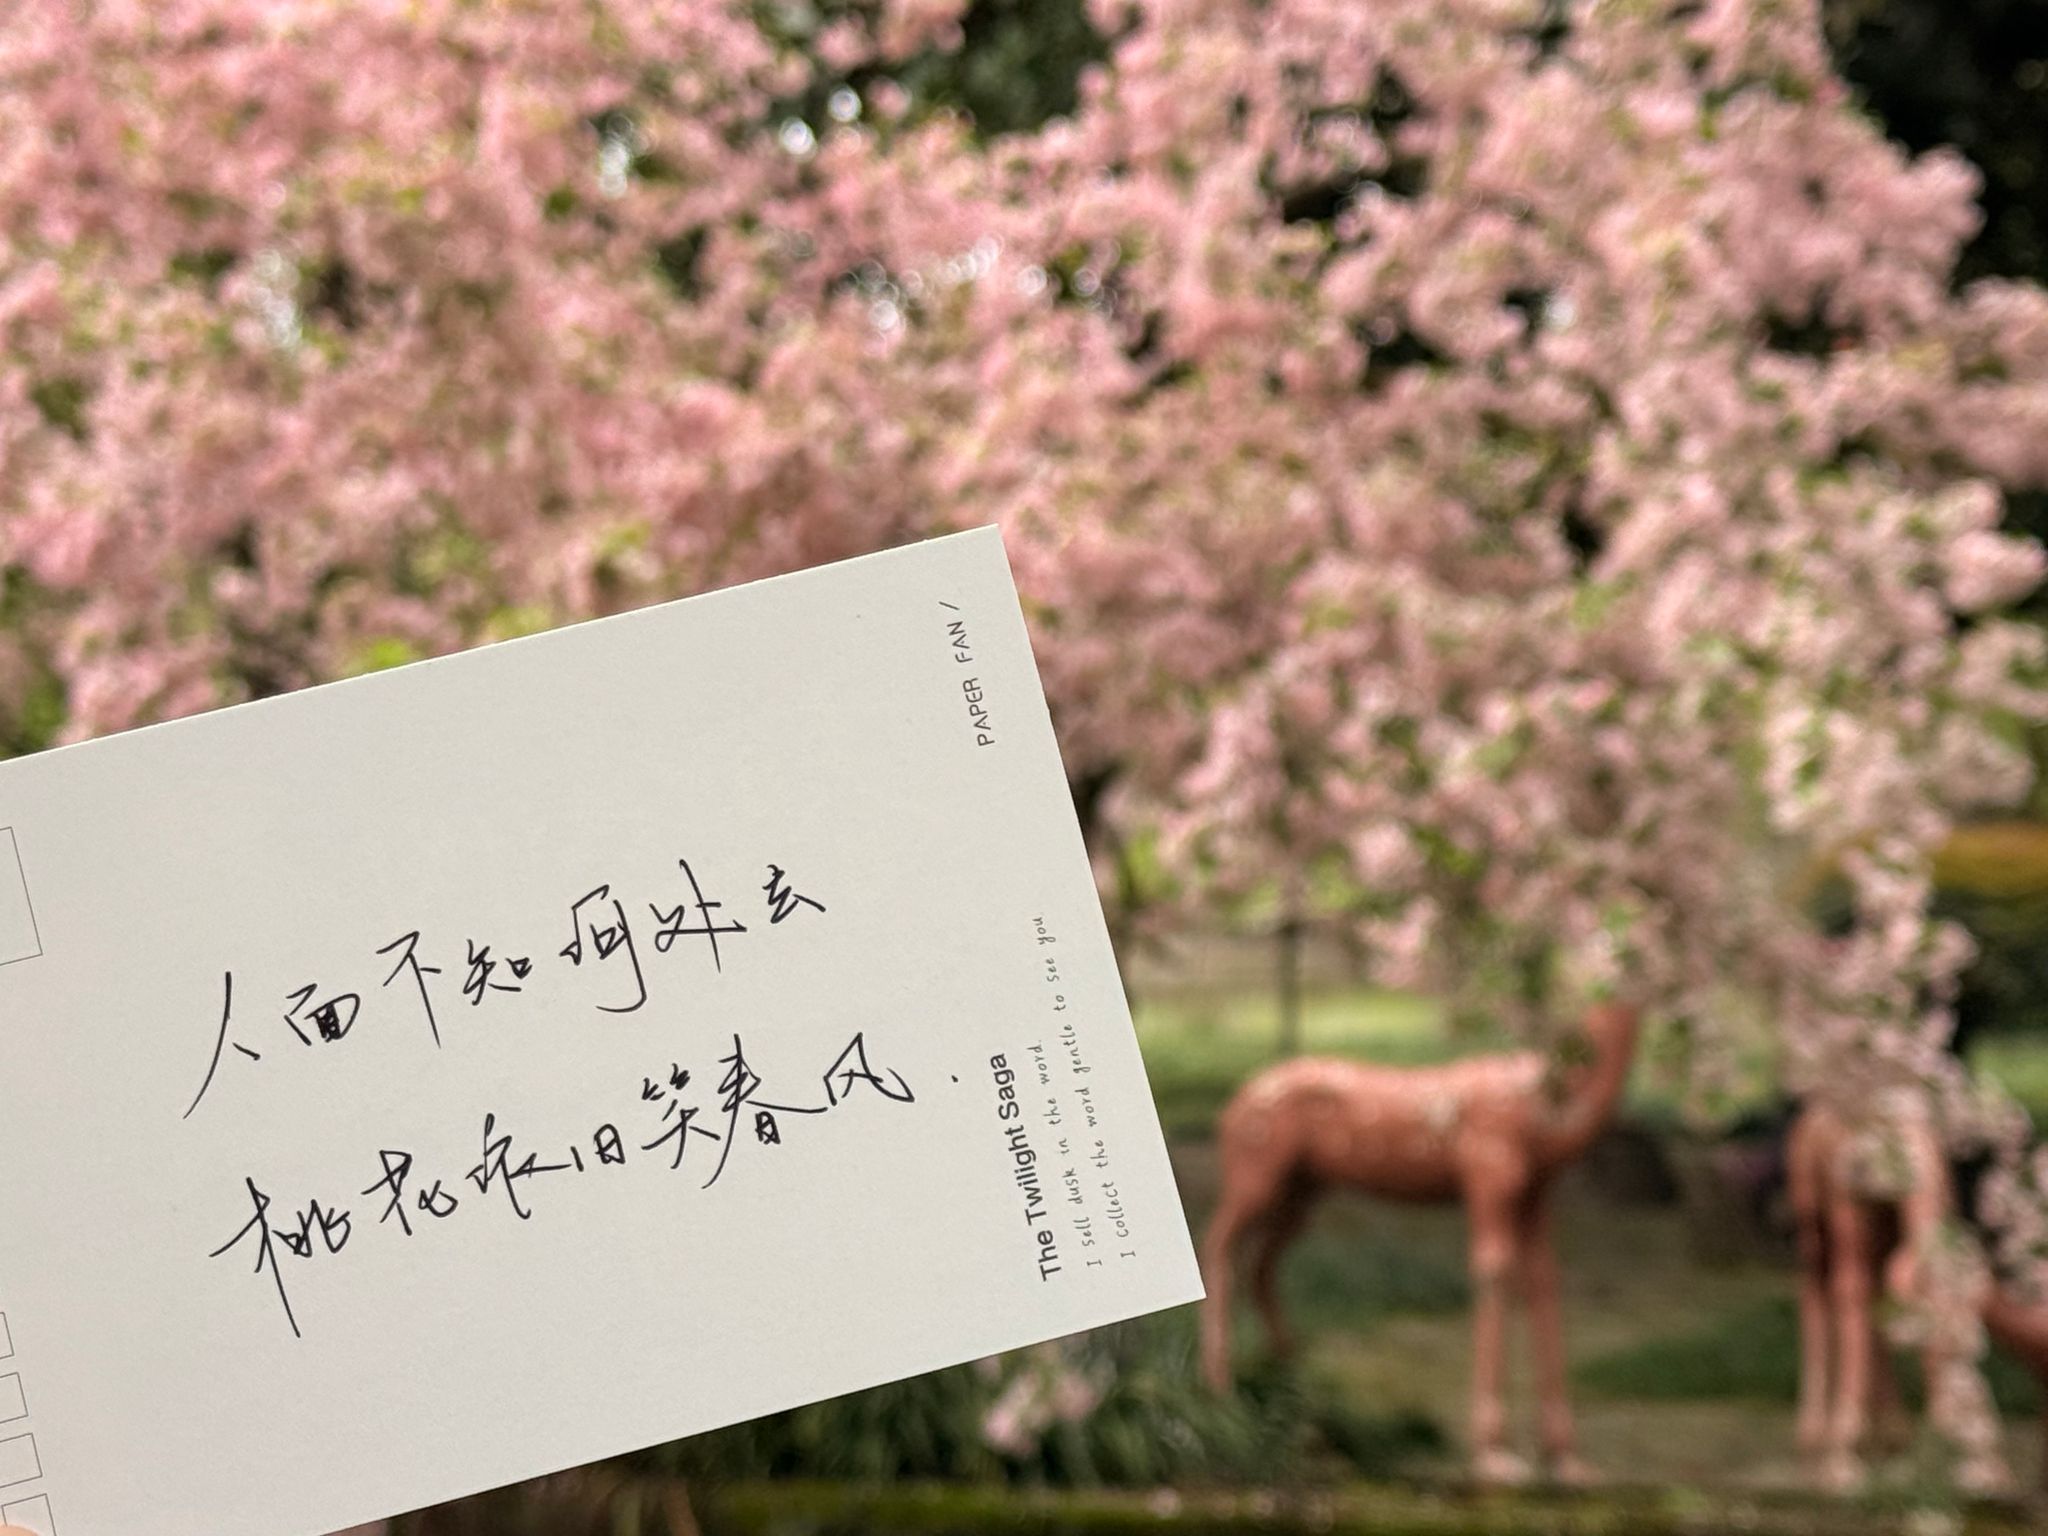 人面不知何处去
桃花依旧笑春风.
PAPER FAN /
The Twilight Saga
I sell dusk in the word.
I collect the word gentle to see you